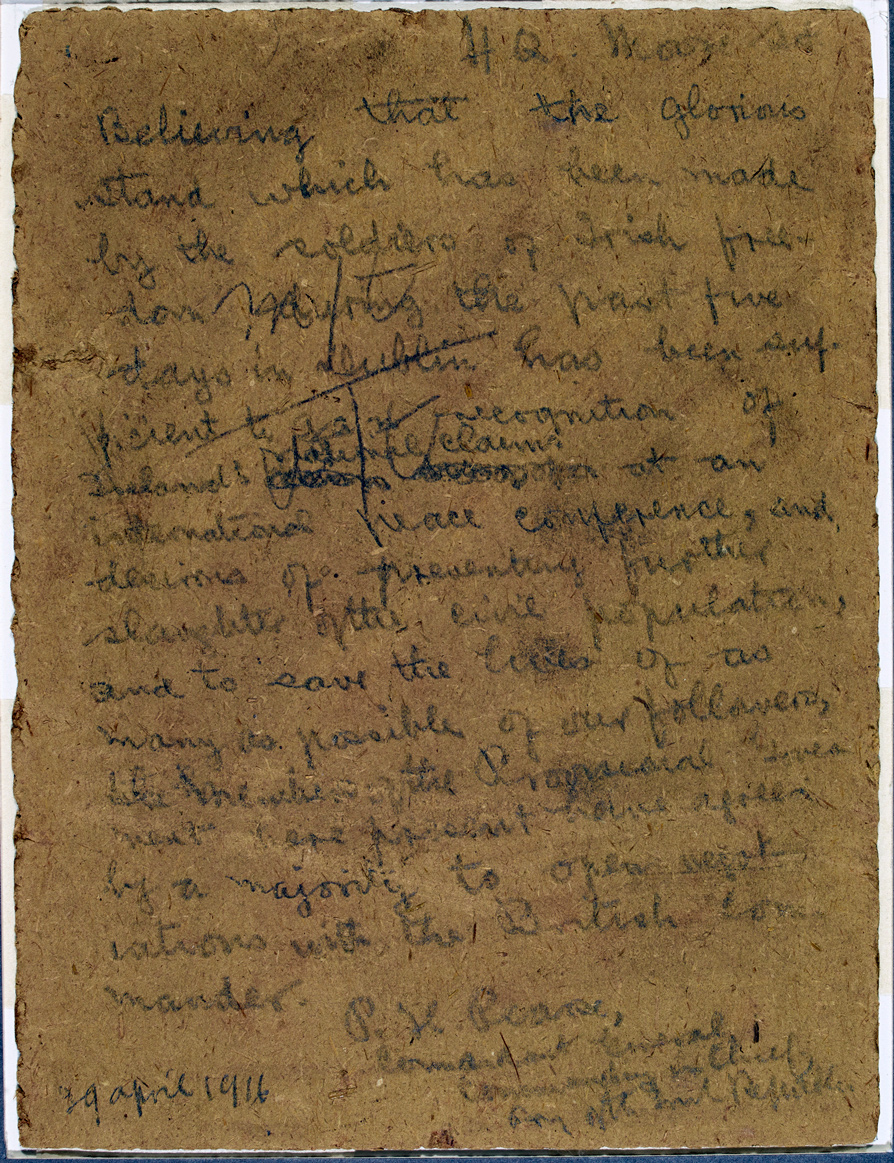 H Q. Moore St
Believing that the glorious
stand which has been made
by the soldiers of Irish free-
dom during the past five
days in Dublin has been suf-
ficient to gain recognition of
Ireland's national claim
at an
international peace conference, and
desirous of preventing further
slaughter of the civil population,
and to save the lives of as
many as possible of our followers,
the members of the Provisional Govern
ment here present have agreed
by a majority to open negot
iations with the British Com
mander.
P. H. Pearse,
Commandant General,
Commanding in Chief,
Army of the Irish Republic
29 april 1916